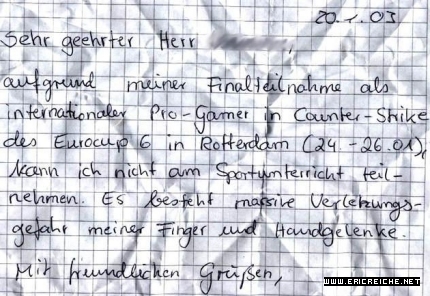 20.1.03
Sehr geehrter Herr
aufgrund meiner Finalteilnahme als
internationaler Pro-Gamer in Counter-Strike
des Eurocup 6 in Rotterdam (24.-26.01),
kann ich nicht am Sportunterricht teil-
nehmen. Es besteht massive Verletzungs-
gefahr meiner Finger und Handgelenke.
Mit freundlichen Grüßen,
WWW.ERICREICHE.NET